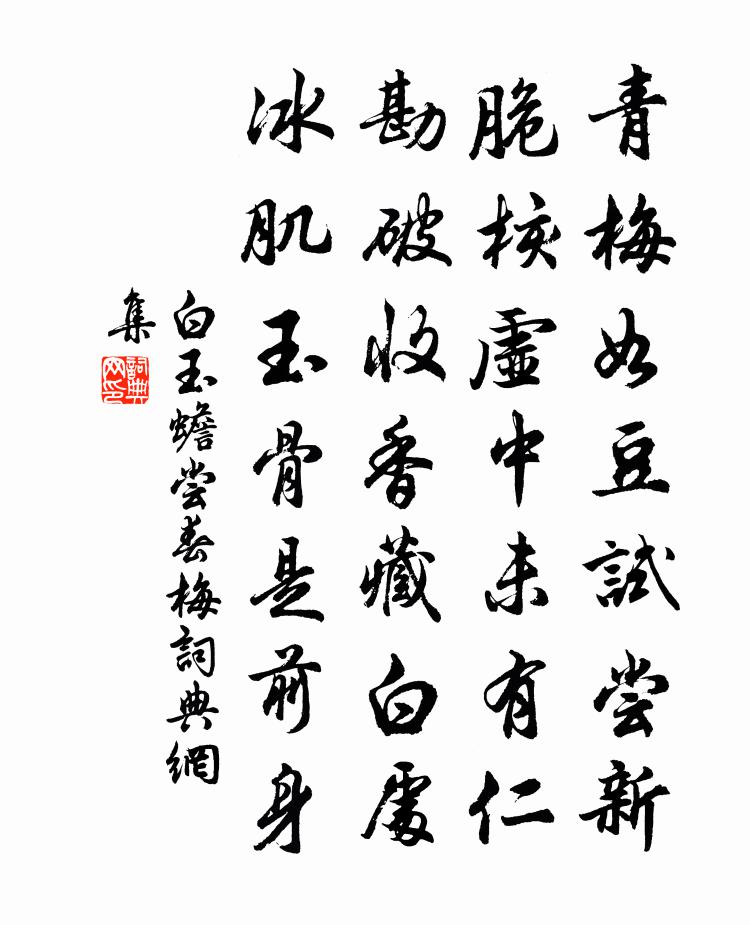 青梅如豆試尝新
脆核虛中未有仁
勘破收香藏白處
冰肌玉骨是前身
白玉蟾尝春梅詞典網
集
詞典
网印